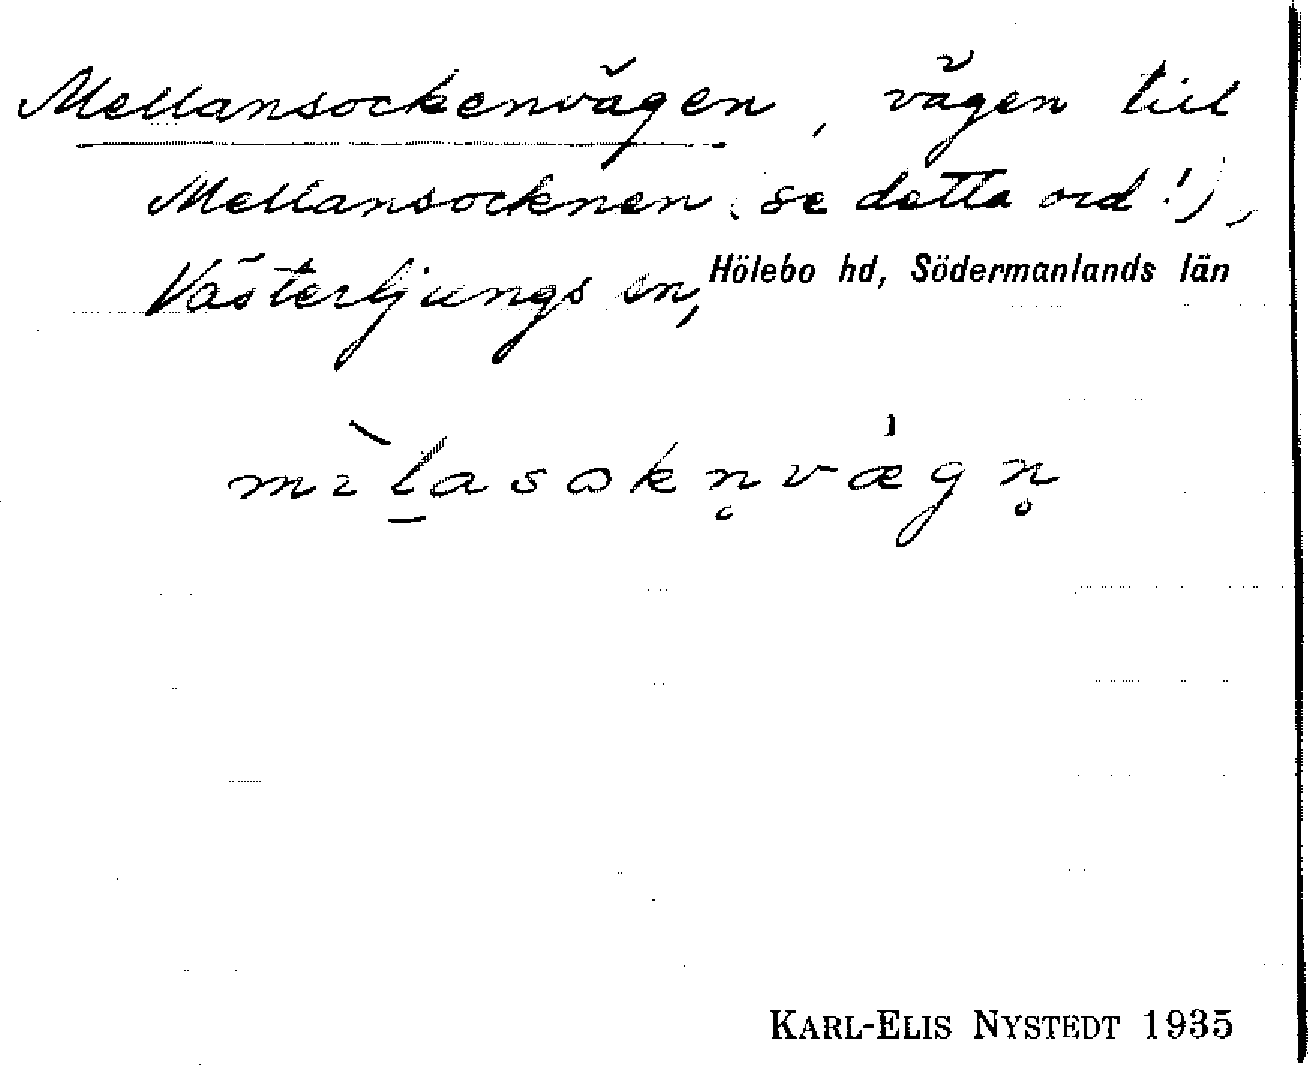 Mellansockenvägen, vägen till
Mellansocknen (se detta ord!),
Västerljungs sn, Hölebo hd, Södermanlands län
mɪ̀l̠asɷkn̥vægn̥
KARL-ELIS NYSTEDT 1935